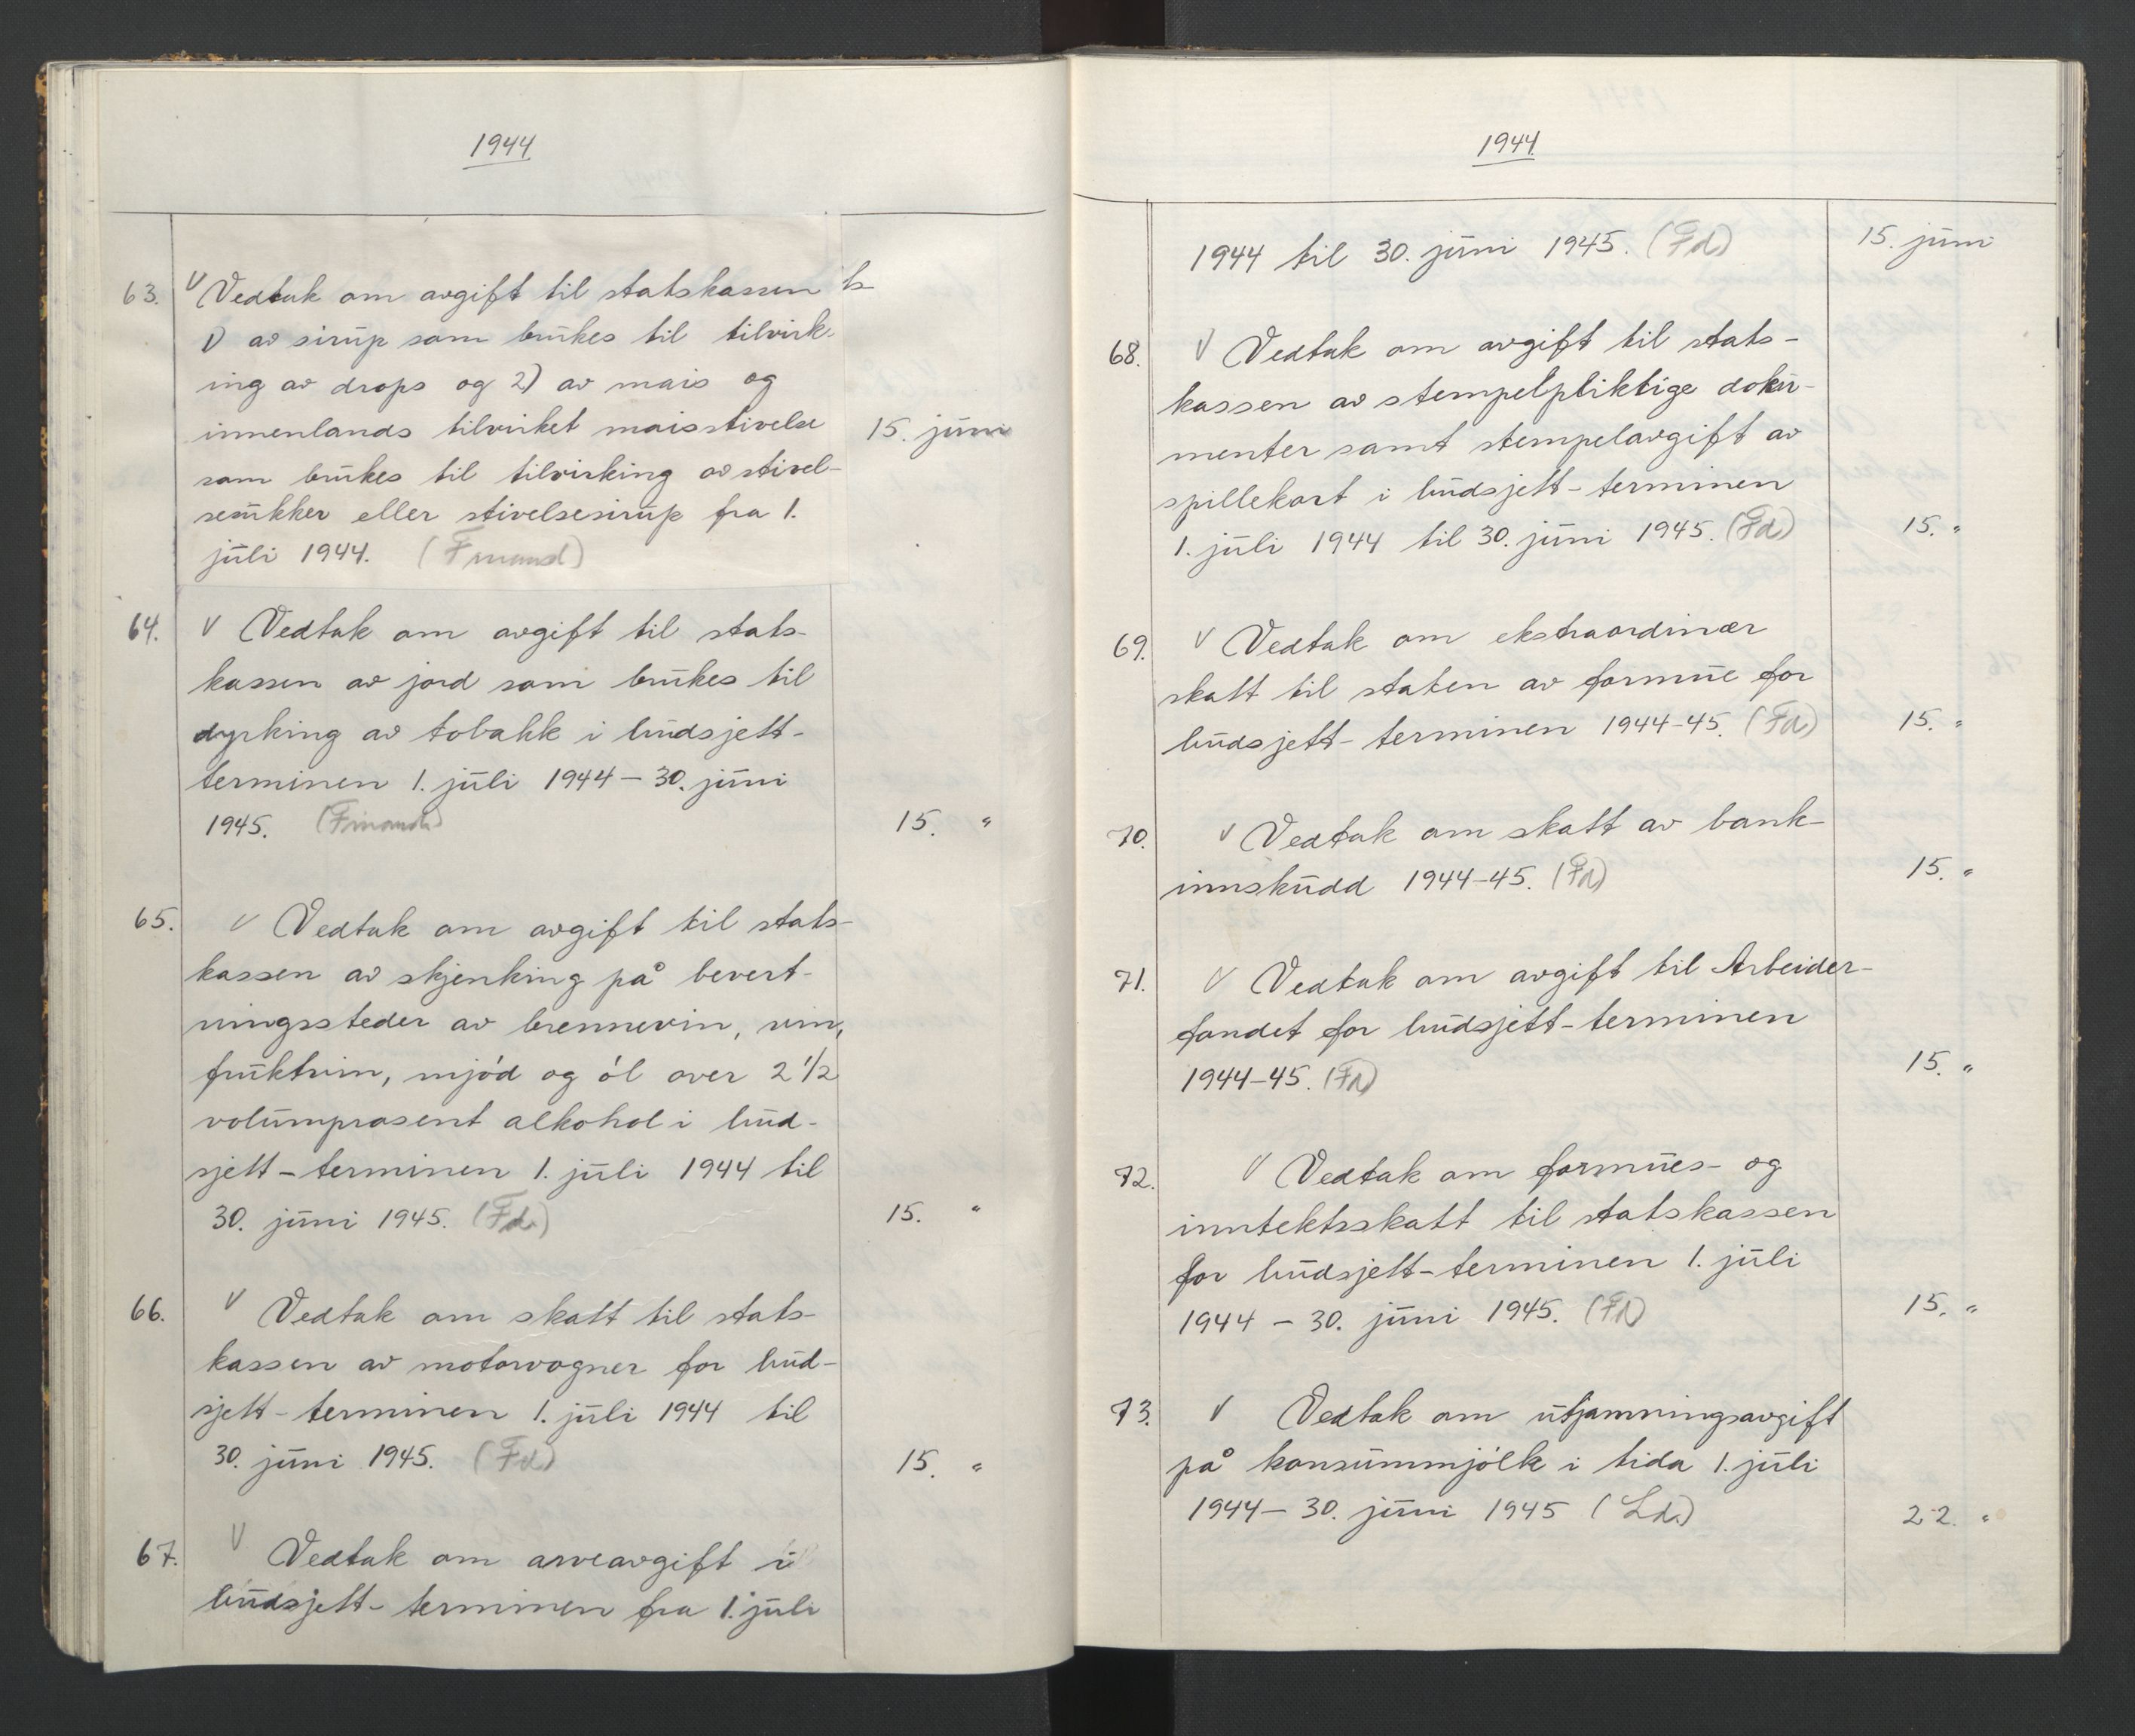 1944
63. V Vedtak om avgift til statskassen
1) av sirup som brukes til tilvirk-
ing av drops og 2) av mais og
innenlands tilvirket maisstivelse 15. juni
som brukes til tilvirking av stivel-
sesukker eller stivelsesirup fra 1.
juli 1944.
64. V Vedtak om avgift til stats-
kassen av jord som brukes til
dyrking av tobakk i budsjett-
terminen 1. juli 1944 – 30. juni
1945. 15. "
65. V Vedtak om avgift til stats-
kassen av skjenking på bevert-
ningssteder av brennevin, vin,
fruktvin, mjód og ól over 2 1/2
volumprosent alkohol i bud-
sjett-terminen 1. juli 1944 til
30. juni 1945. (Fd.) 15. "
66. V Vedtak om skatt til stats-
kassen av motorvogner for bud-
sjett-terminen 1. juli 1944 til
30. juni 1945. (Fd) 15. "
67. V Vedtak om arveavgift i
budsjett-terminen fra 1. juli
1944
1944 til 30. juni 1945. (Fd) 15. juni
68. V Vedtak om avgift til stats-
kassen av stempelpliktige doku-
menter samt stempelavgift av
spillekort i budsjett-terminen
1. juli 1944 til 30. juni 1945. (Fd) 15. "
69. V Vedtak om ekstraordinær
skatt til staten av formue for
budsjett-terminen 1944-45. (Fd) 15. "
70. V Vedtak om skatt av bank-
innskudd 1944-45. (Fd) 15. "
71. V Vedtak om avgift til Arbeider-
fondet for budsjett-terminen
1944-45. (Fd) 15. "
72. V Vedtak om formues- og
inntektsskatt til statskassen
for budsjett-terminen 1. juli
1944 – 30. juni 1945. (Fd) 15. "
73. V Vedtak om utjamningsavgift
på konsummjólk i tida 1. juli
1944 – 30. juni 1945 (Ld.) 22. "